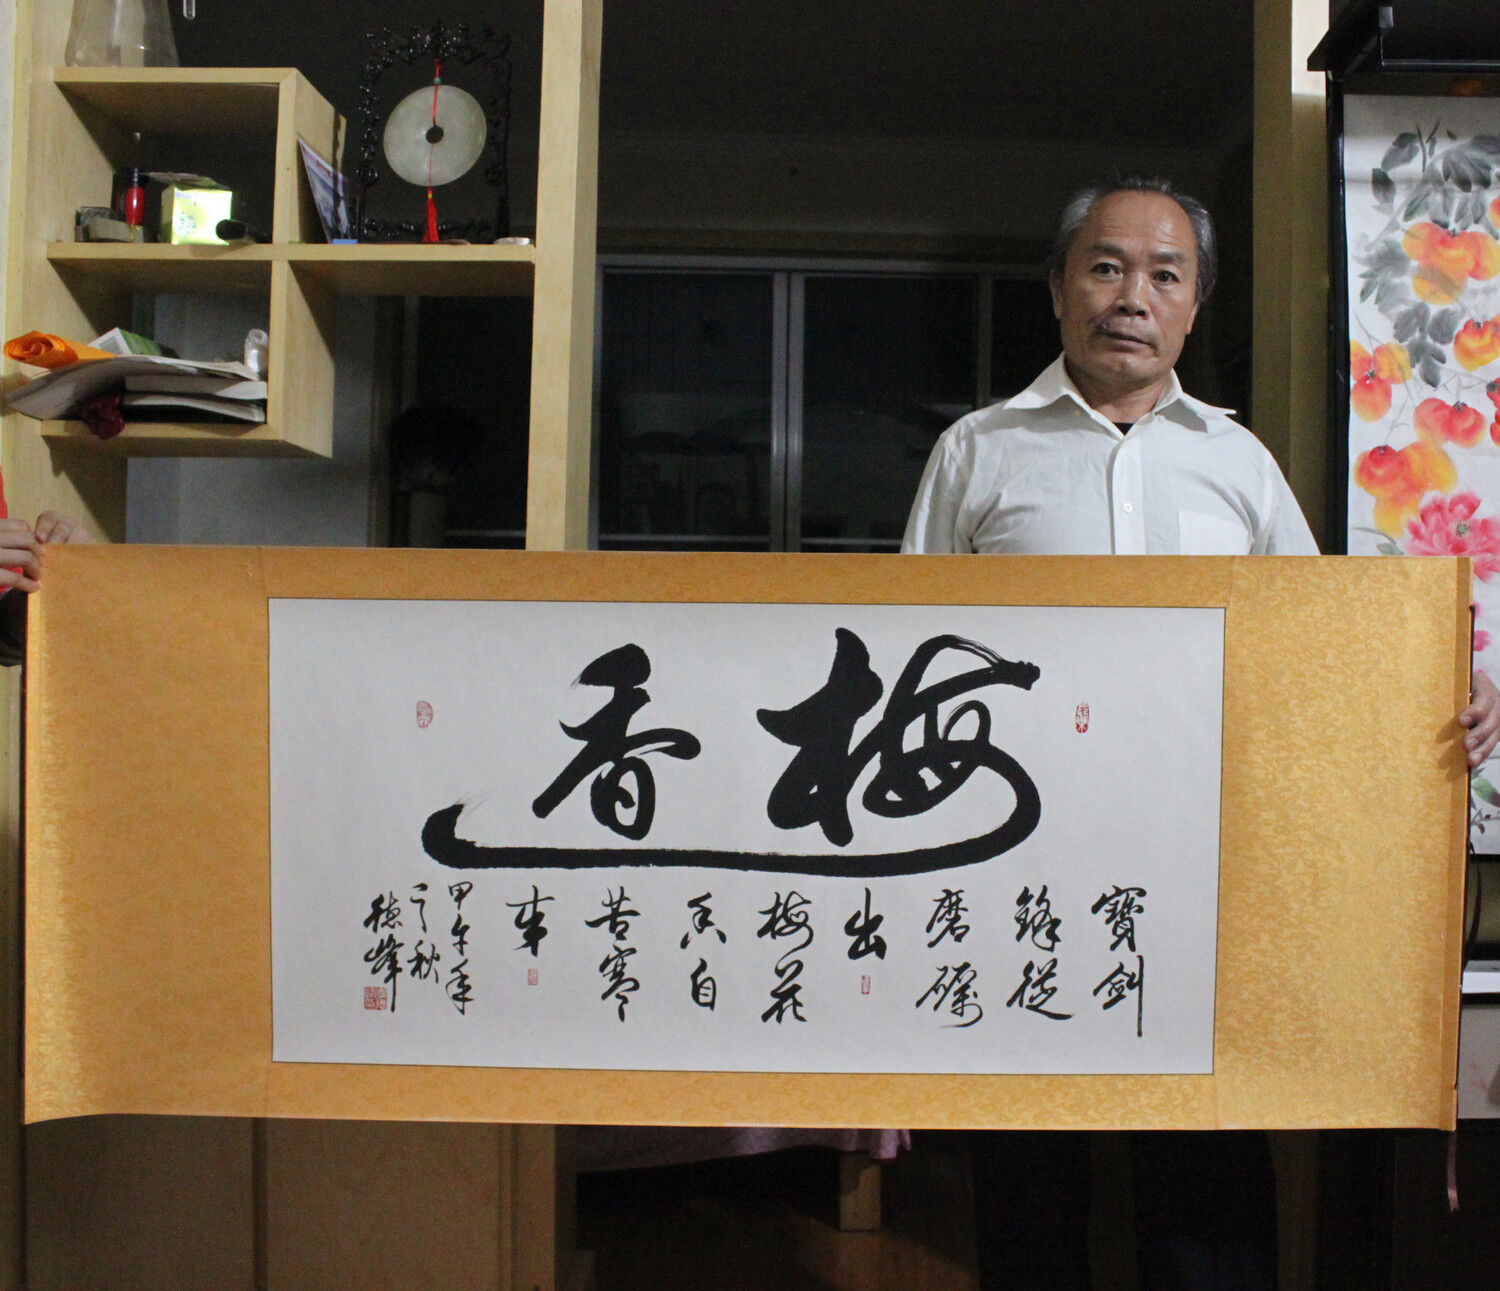 梅香
寶劍
鋒從
磨礪
出
梅花
香自
苦寒
來
甲午年
之秋
德峰